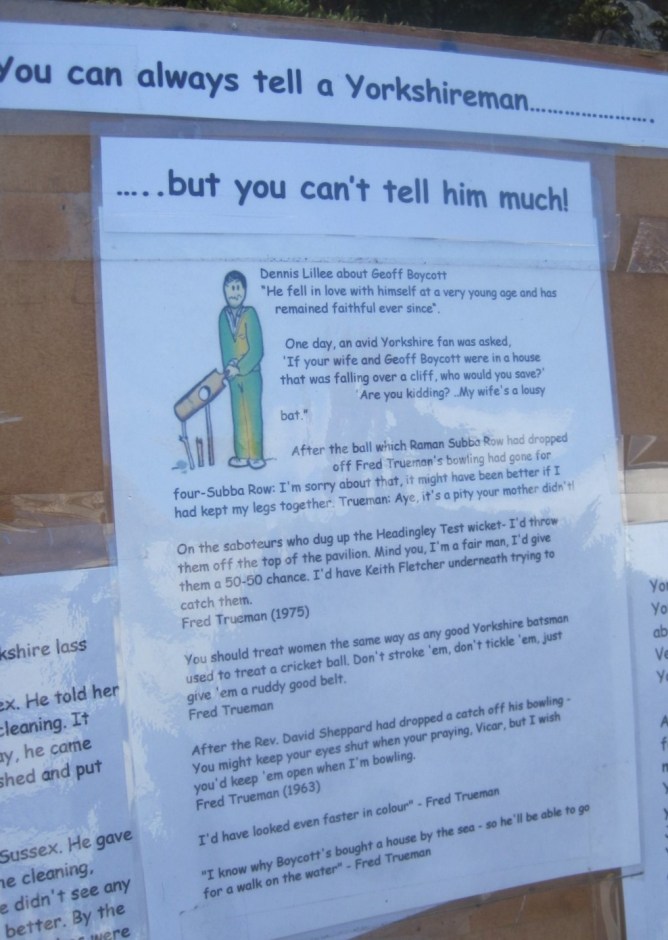 You can always tell a Yorkshireman......................
.....but you can't tell him much!
Dennis Lillee about Geoff Boycott
"He fell in love with himself at a very young age and has
remained faithful ever since".
One day, an avid Yorkshire fan was asked,
'If your wife and Geoff Boycott were in a house
that was falling over a cliff, who would you save?'
'Are you kidding? ..My wife's a lousy
bat."
After the ball which Raman Subba Row had dropped
off Fred Trueman's bowling had gone for
four-Subba Row: I'm sorry about that, it might have been better if I
had kept my legs together. Trueman: Aye, it's a pity your mother didn't!
On the saboteurs who dug up the Headingley Test wicket- I'd throw
them off the top of the pavilion. Mind you, I'm a fair man, I'd give
them a 50-50 chance. I'd have Keith Fletcher underneath trying to
catch them.
Fred Trueman (1975)
You should treat women the same way as any good Yorkshire batsman
used to treat a cricket ball. Don't stroke 'em, don't tickle 'em, just
give 'em a ruddy good belt.
Fred Trueman
After the Rev. David Sheppard had dropped a catch off his bowling -
You might keep your eyes shut when your praying, Vicar, but I wish
you'd keep 'em open when I'm bowling.
Fred Trueman (1963)
I'd have looked even faster in colour" - Fred Trueman
"I know why Boycott's bought a house by the sea - so he'll be able to go
for a walk on the water" - Fred Trueman
kshire lass
ex. He told her
cleaning. It
ay, he came
shed and put
Sussex. He gave
he cleaning,
e didn't see any
better. By the
were
Yo
Yo
ab
Ve
Y
A
f